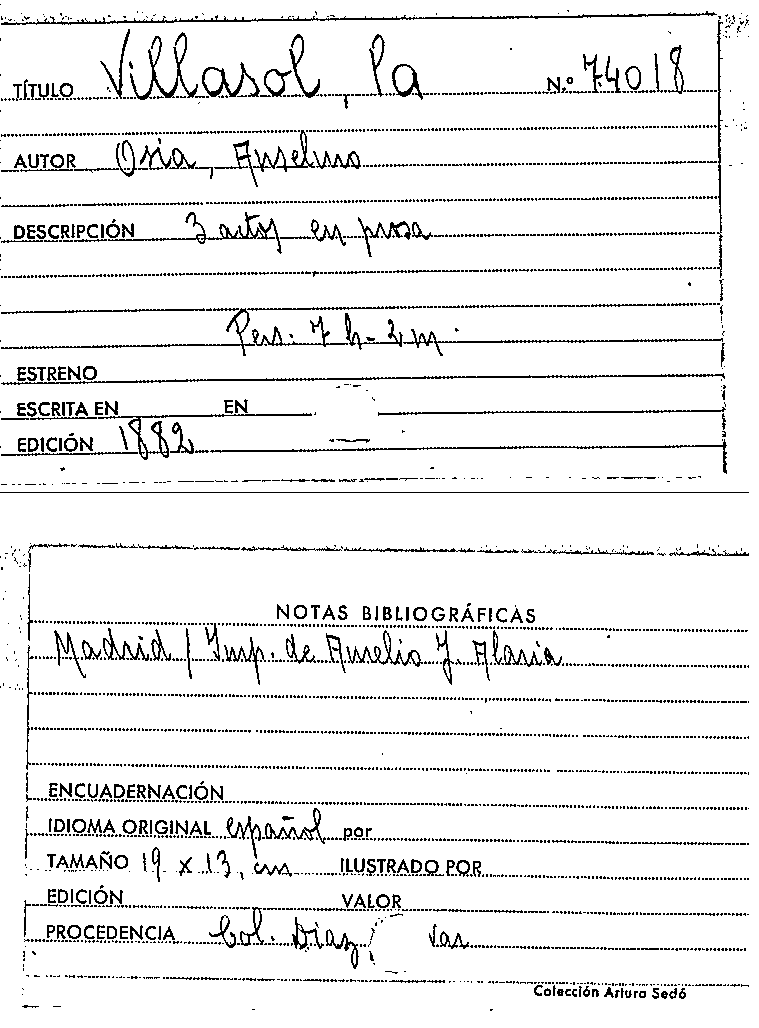 TÍTULO Villasol, la N.º 74018
AUTOR Osia, Anselmo
DESCRIPCIÓN 3 actos en prosa
Pers: 7 h- 2 m.
ESTRENO
ESCRITA EN EN
EDICIÓN 1882
NOTAS BIBLIOGRÁFICAS
Madrid / Imp. de Aurelio J. Alaria
ENCUADERNACIÓN
IDIOMA ORIGINAL español por
TAMAÑO 19 x 13, cm ILUSTRADO POR
EDICIÓN VALOR
PROCEDENCIA Col. Díaz
Colección Arturo Sedó